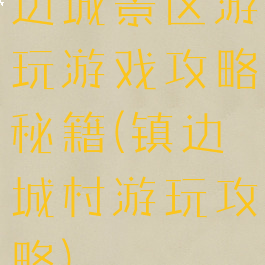 边城景区游
玩游戏攻略
秘籍(镇边
城村游玩攻
略)